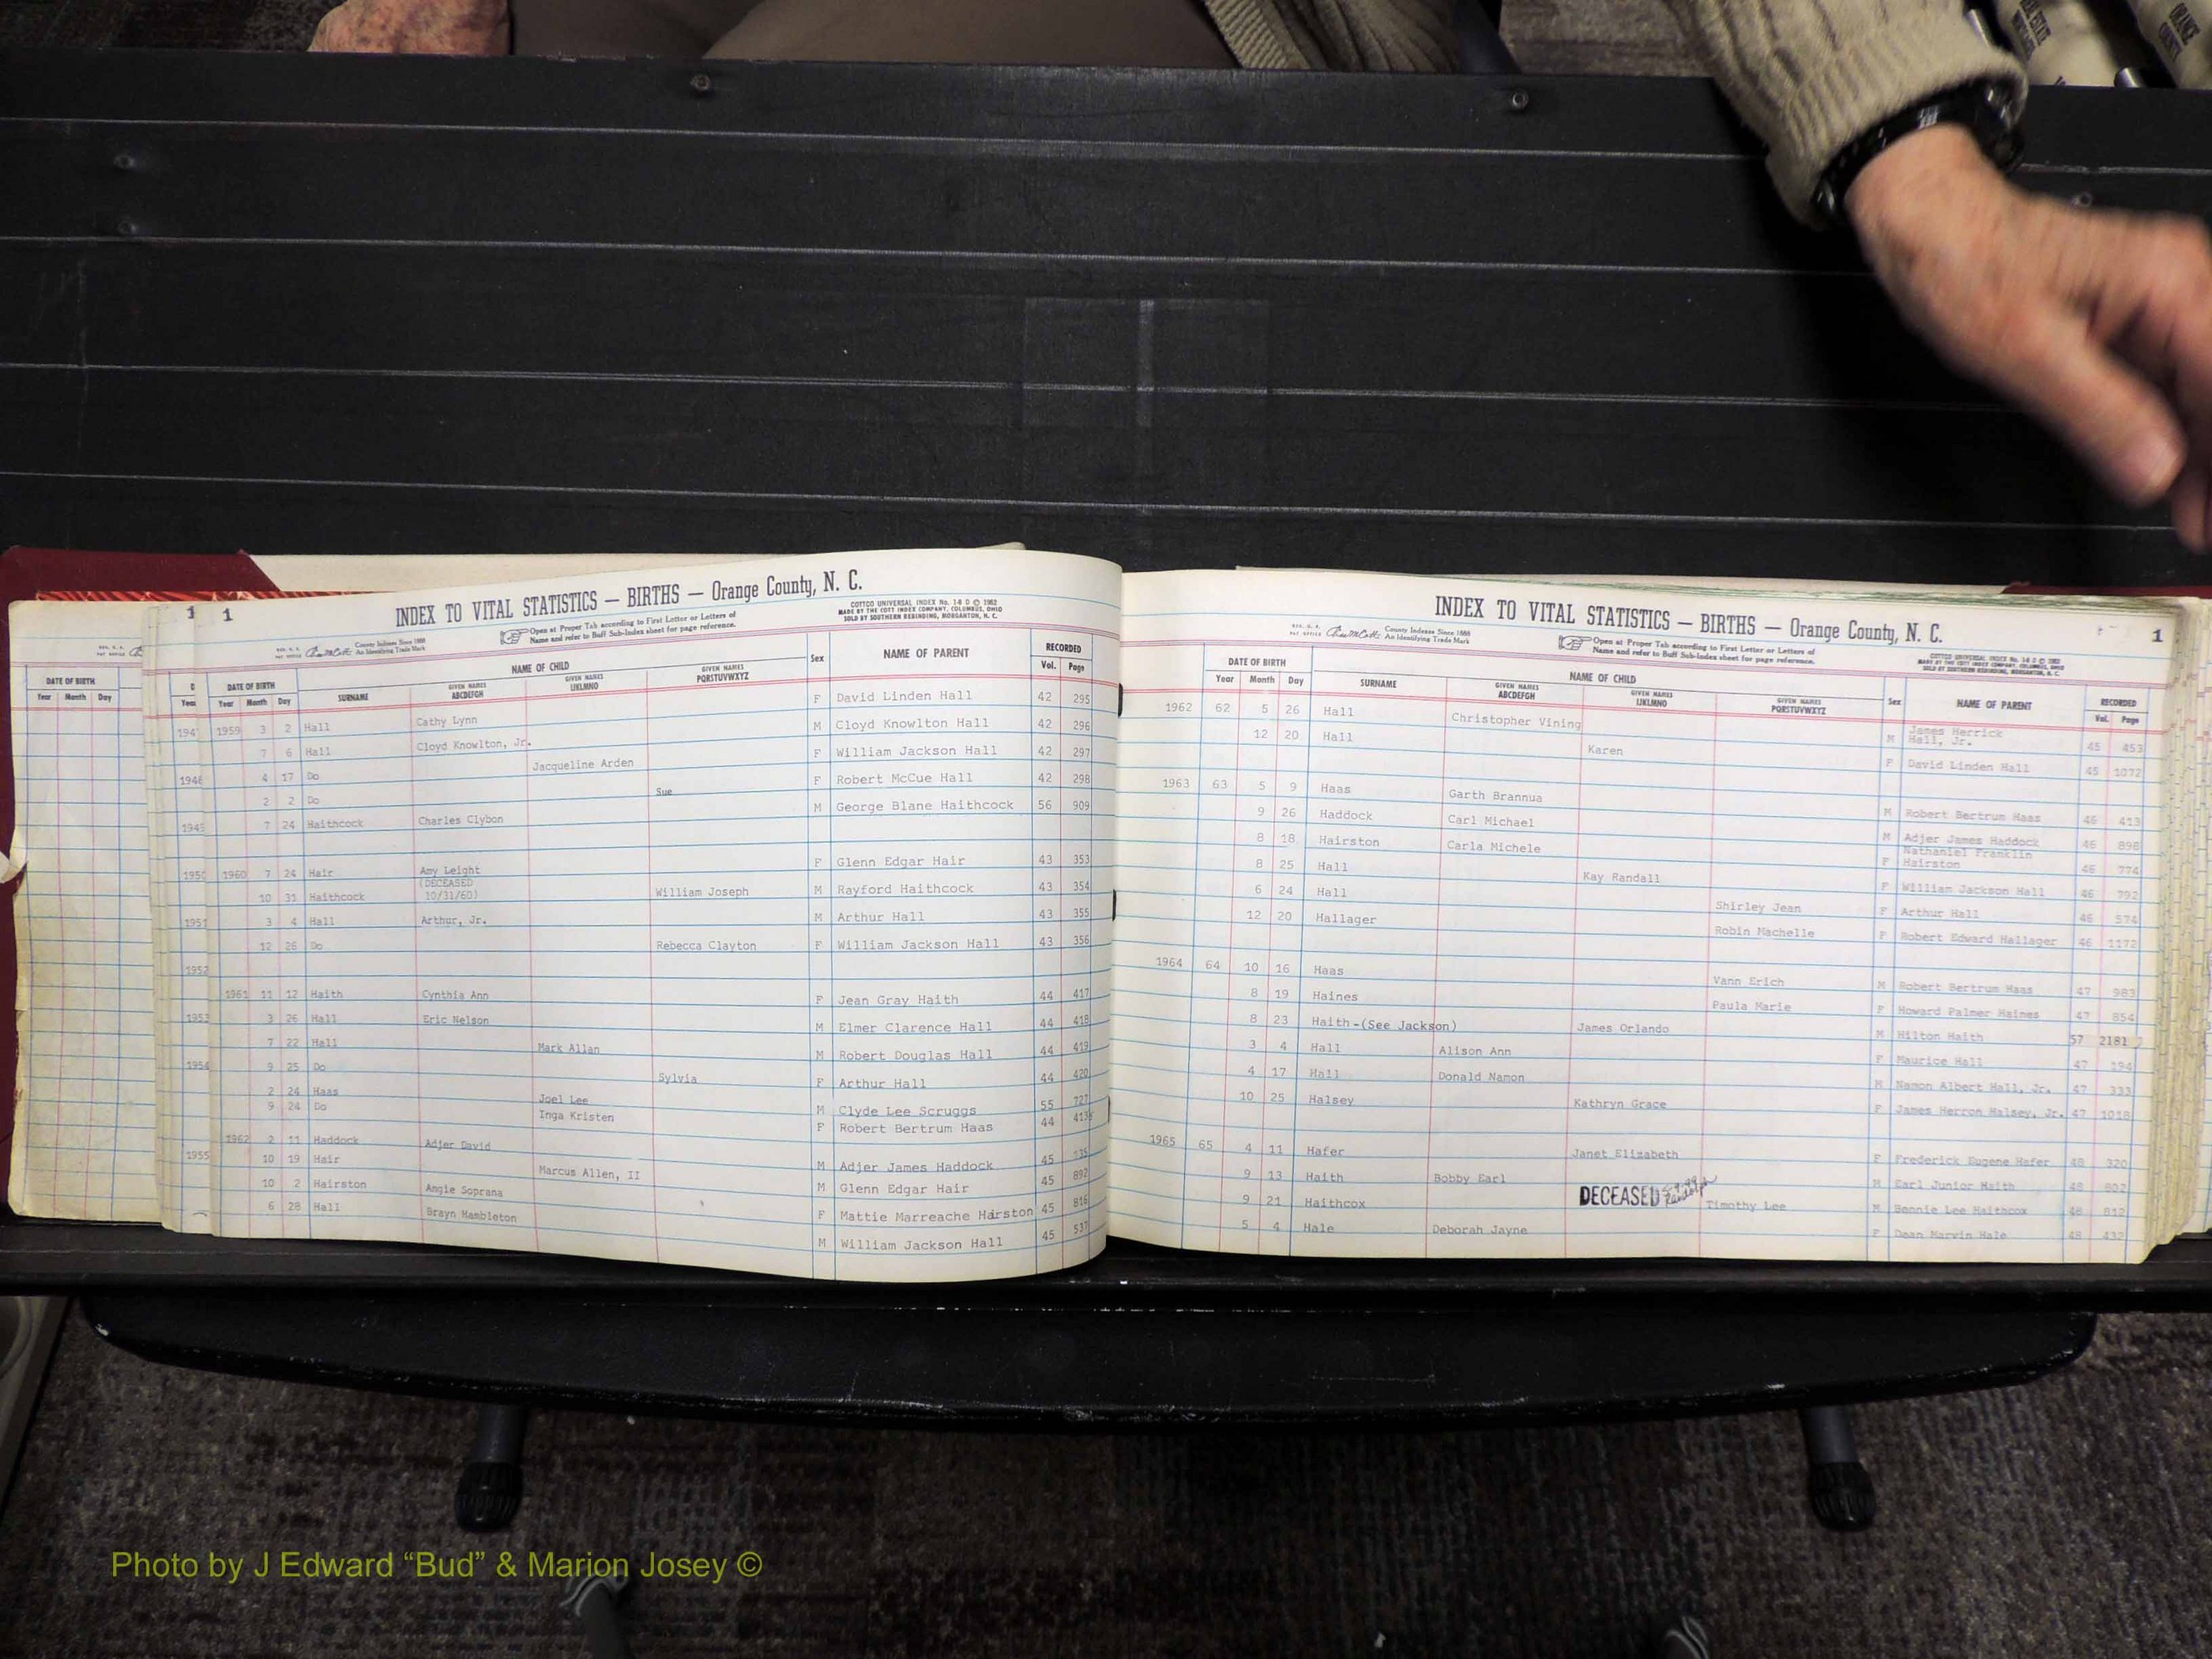 1 1
INDEX TO VITAL STATISTICS — BIRTHS — Orange County, N. C.
COTTCO UNIVERSAL INDEX No. 1-8 D © 1962
MADE BY THE COTT INDEX COMPANY, COLUMBUS, OHIO
SOLD BY SOUTHERN REBINDING, MORGANTON, N. C.
County Indexes Since 1888
An Identifying Trade Mark
Open at Proper Tab according to First Letter or Letters of
Name and refer to Buff Sub-Index sheet for page reference.
DATE OF BIRTH
Year Month Day
DATE OF BIRTH NAME OF CHILD Sex NAME OF PARENT RECORDED
Year Month Day SURNAME GIVEN NAMES ABCDEFGH GIVEN NAMES IJKLMNO GIVEN NAMES PQRSTUVWXYZ Vol. Page
1959 3 2 Hall Cathy Lynn F David Linden Hall 42 295
7 6 Hall Cloyd Knowlton, Jr. M Cloyd Knowlton Hall 42 296
4 17 Do Jacqueline Arden F William Jackson Hall 42 297
2 2 Do Sue F Robert McCue Hall 42 298
7 24 Haithcock Charles Clybon M George Blane Haithcock 56 909
1960 7 24 Hair Amy Leight F Glenn Edgar Hair 43 353
(DECEASED
10/31/60)
10 31 Haithcock William Joseph M Rayford Haithcock 43 354
3 4 Hall Arthur, Jr. M Arthur Hall 43 355
12 26 Do Rebecca Clayton F William Jackson Hall 43 356
1961 11 12 Haith Cynthia Ann F Jean Gray Haith 44 417
3 26 Hall Eric Nelson M Elmer Clarence Hall 44 418
7 22 Hall Mark Allan M Robert Douglas Hall 44 419
9 25 Do Sylvia F Arthur Hall 44 420
2 24 Haas Joel Lee M Clyde Lee Scruggs 55 727
9 24 Do Inga Kristen F Robert Bertrum Haas 44
1962 2 11 Haddock Adjer David M Adjer James Haddock 45
10 19 Hair Marcus Allen, II M Glenn Edgar Hair 45 892
10 2 Hairston Angie Soprana F Mattie Marreache Hairston 45 816
6 28 Hall Brayn Hambleton M William Jackson Hall 45 537
1950
1951
1952
1953
1954
1955
INDEX TO VITAL STATISTICS — BIRTHS — Orange County, N. C. 1
County Indexes Since 1888
An Identifying Trade Mark
Open at Proper Tab according to First Letter or Letters of
Name and refer to Buff Sub-Index sheet for page reference.
COTTCO UNIVERSAL INDEX No. 1-8 D © 1962
MADE BY THE COTT INDEX COMPANY, COLUMBUS, OHIO
SOLD BY SOUTHERN REBINDING, MORGANTON, N. C.
DATE OF BIRTH NAME OF CHILD Sex NAME OF PARENT RECORDED
Year Month Day SURNAME GIVEN NAMES ABCDEFGH GIVEN NAMES IJKLMNO GIVEN NAMES PQRSTUVWXYZ Vol. Page
1962 62 5 26 Hall Christopher Vining M James Herrick Hall, Jr. 45 453
12 20 Hall Karen F David Linden Hall 45 1072
1963 63 5 9 Haas Garth Brannua M Robert Bertrum Haas 46 413
9 26 Haddock Carl Michael M Adjer James Haddock 46 898
8 18 Hairston Carla Michele F Nathaniel Franklin Hairston 46 774
8 25 Hall Kay Randall F William Jackson Hall 46 792
6 24 Hall Shirley Jean F Arthur Hall 46 574
12 20 Hallager Robin Machelle F Robert Edward Hallager 46 1172
1964 64 10 16 Haas Vann Erich M Robert Bertrum Haas 47 983
8 19 Haines Paula Marie F Howard Palmer Haines 47 854
8 23 Haith-(See Jackson) James Orlando M Hilton Haith 57 2181
3 4 Hall Alison Ann F Maurice Hall 47 194
4 17 Hall Donald Namon M Namon Albert Hall, Jr. 47 333
10 25 Halsey Kathryn Grace F James Herron Halsey, Jr. 47 1018
1965 65 4 11 Hafer Janet Elizabeth F Frederick Eugene Hafer 48 320
9 13 Haith Bobby Earl M Earl Junior Haith 48 802
9 21 Haithcox DECEASED Timothy Lee M Bennie Lee Haithcox 48 812
5 4 Hale Deborah Jayne F Dean Marvin Hale 48 432
ORANGE
COUNTY
Photo by J Edward “Bud” & Marion Josey ©